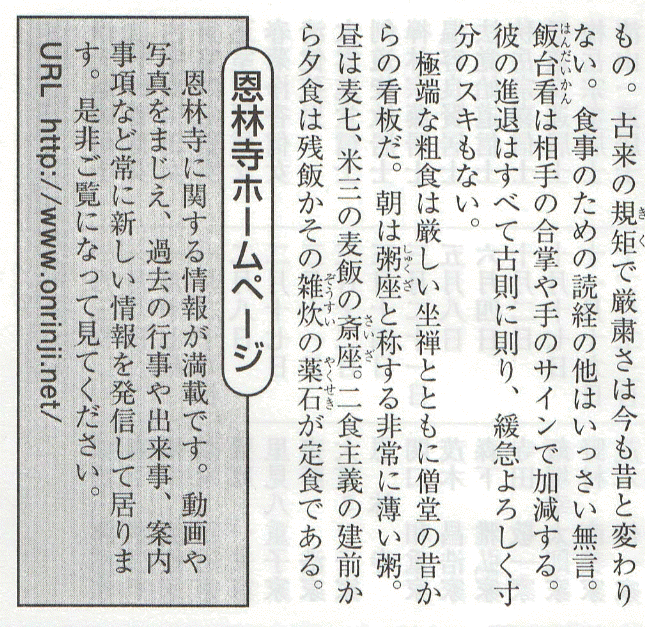 もの。古来の規矩で厳粛さは今も昔と変わり
ない。食事のための読経の他はいっさい無言。
飯台看は相手の合掌や手のサインで加減する。
彼の進退はすべて古則に則り、緩急よろしく寸
分のスキもない。
極端な粗食は厳しい坐禅とともに僧堂の昔か
らの看板だ。朝は粥座と称する非常に薄い粥。
昼は麦七、米三の麦飯の斎座。二食主義の建前か
ら夕食は残飯かその雑炊の薬石が定食である。
恩林寺ホームページ
恩林寺に関する情報が満載です。動画や
写真をまじえ、過去の行事や出来事、案内
事項など常に新しい情報を発信して居りま
す。是非ご覧になって見てください。
URL http://www.onrinji.net/